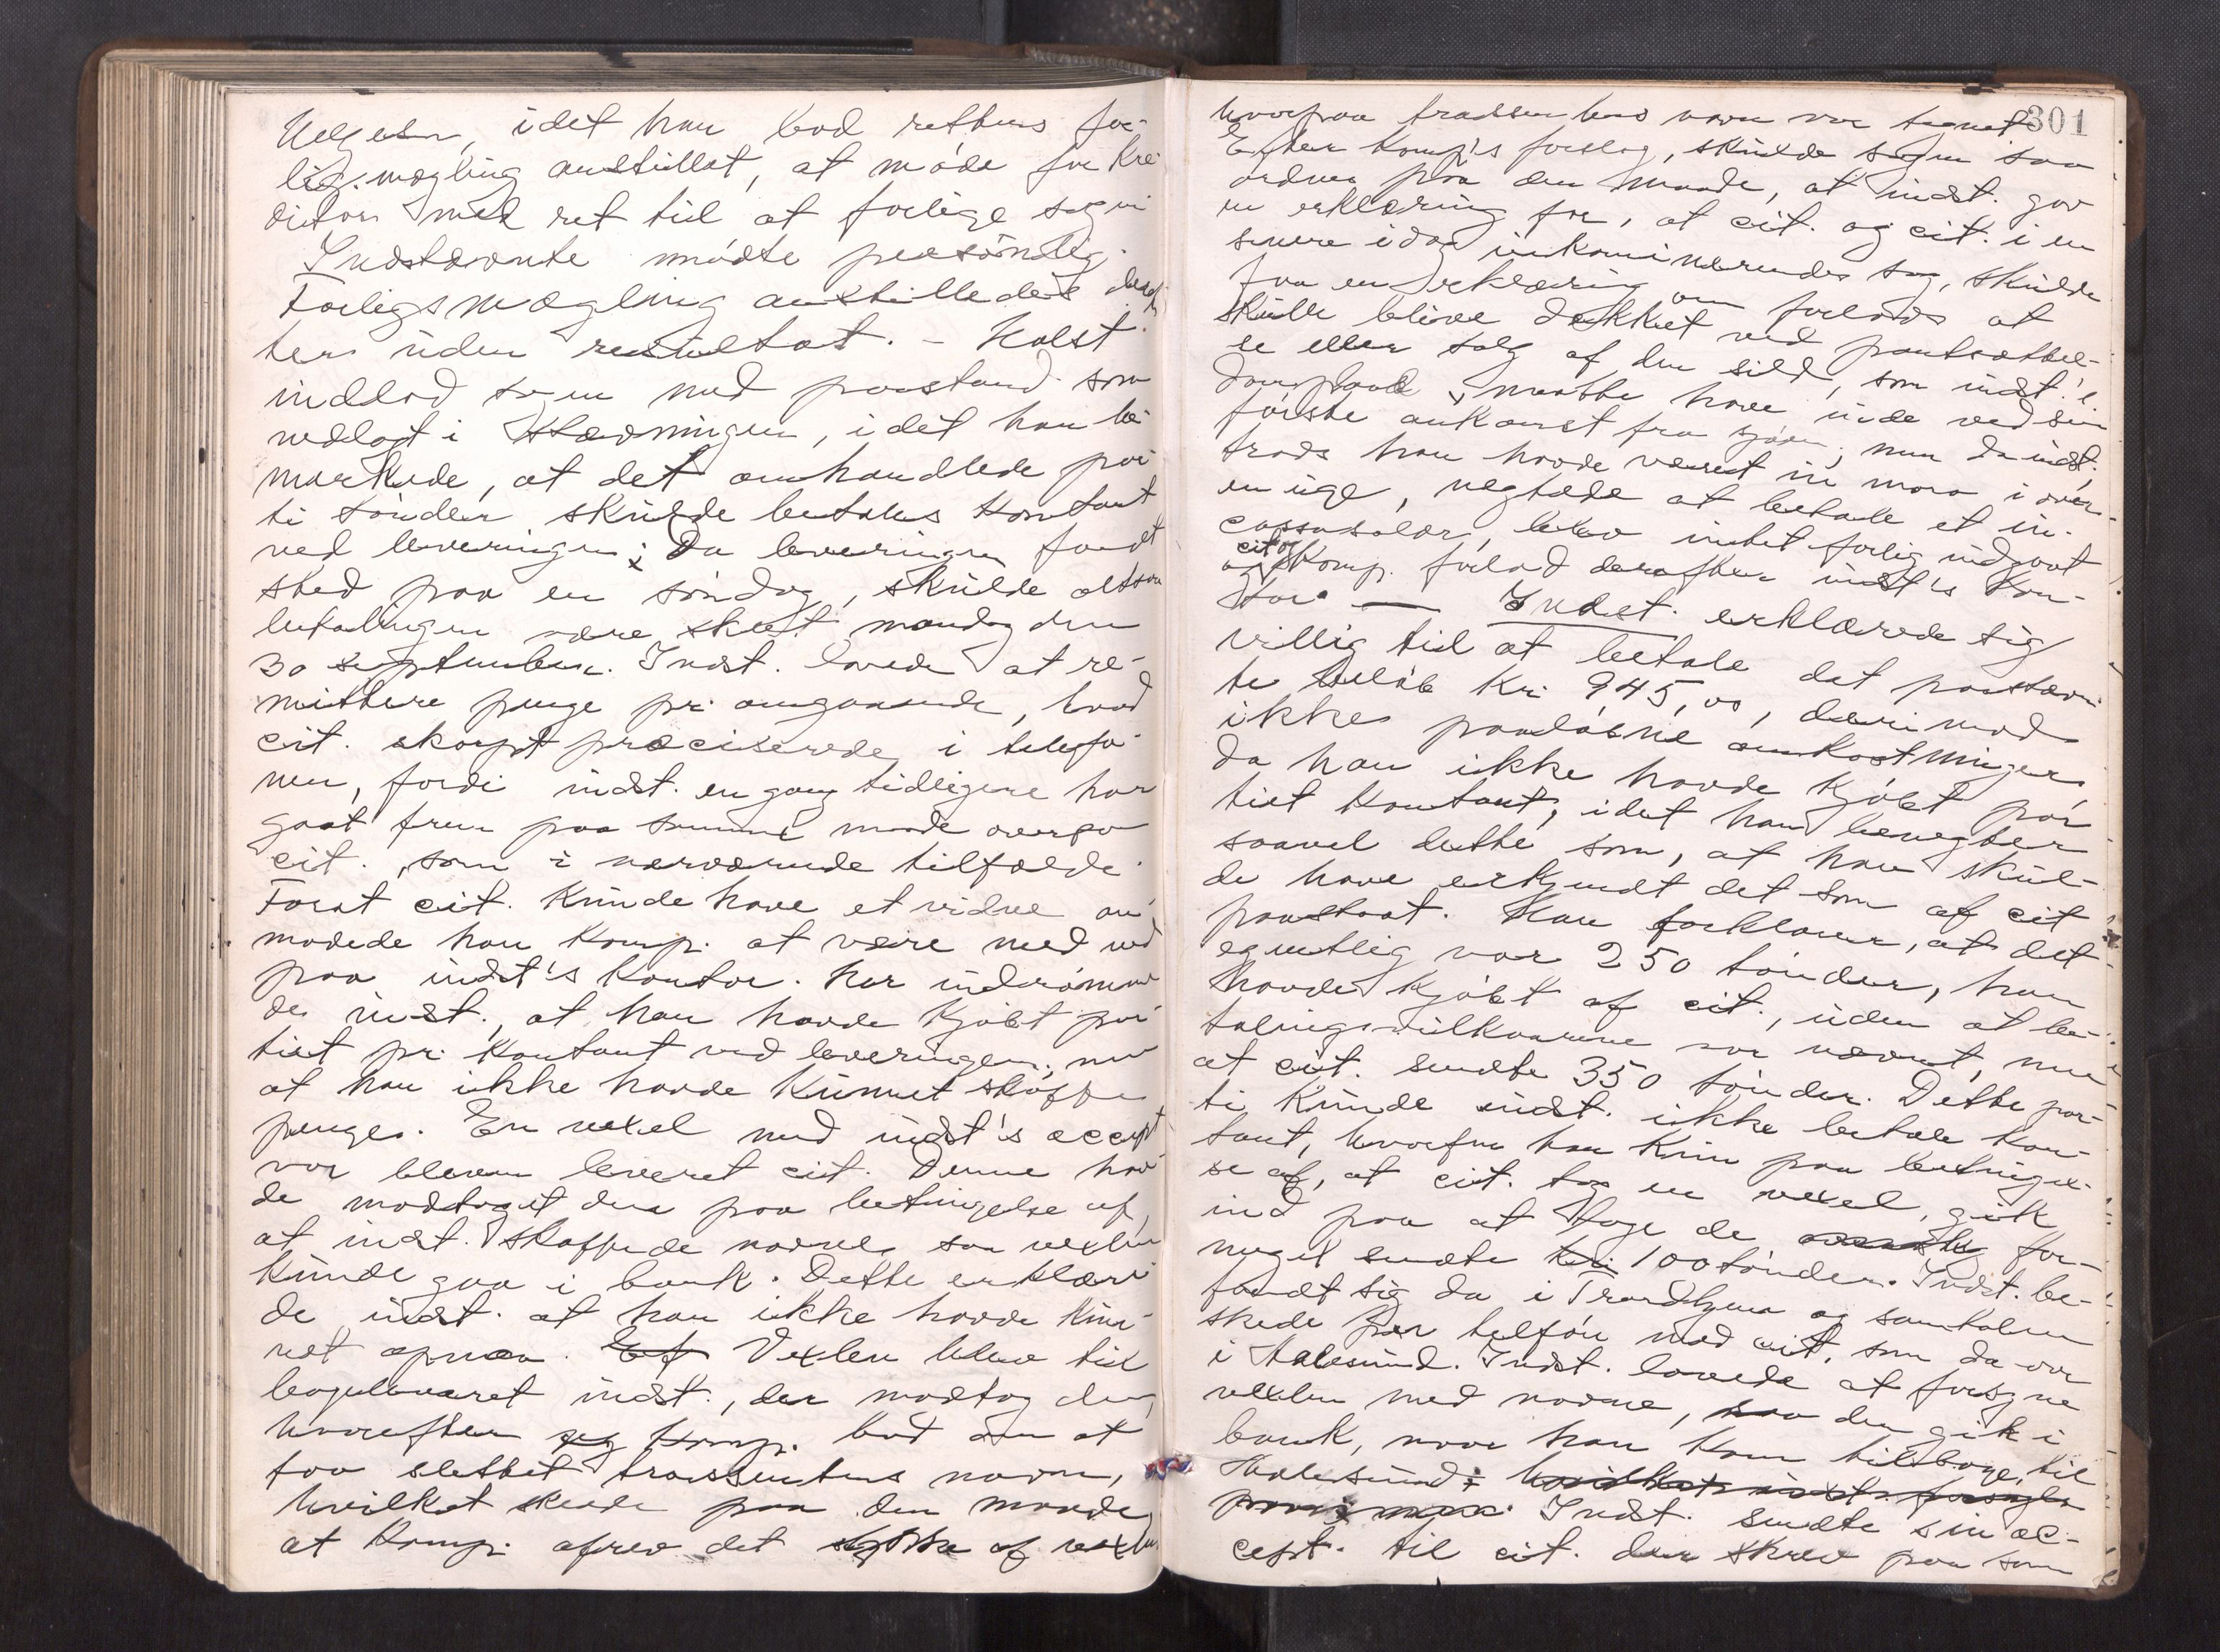 Helgesen, idet han bad rettens for-
ligsmægling anstillet, at møde for Kre-
ditor med ret til at forlige sagen
Indstævnte mødte personlig.
Forligsmægling anstilledes deref-
ter uden resultat. - Holst
indlod sagen med paastand som
nedlagt i stævningen, idet han be-
mærkede, at det omhandlede par-
ti tønder skulde betales kontant
ved leveringen; Da leveringen fandt
sted paa en søndag, skulde altsaa
betalingen være skeet mandag den
30 september. Indst. lovede at re-
mittere penge pr. omgaaende, hvad
cit. skarpt præciserede i telefo-
nen, fordi indst. en gang tidligere har
gaat frem paa samme maade overfor
cit., som i nærværende tilfælde.
Forat cit. kunde have et vidne an-
modede han Komp. at være med ned
paa indst's kontor. Her indrømme-
de indst., at han havde kjøbt par-
tiet pr. kontant ved leveringen, men
at han ikke havde kunnet skaffe
penge. En vexel med indst's accept
var bleven leveret cit. Denne hav-
de modtaget den paa betingelse af,
at indst. skaffede navne, saa vexlen
kunde gaa i bank. Dette erklære-
de indst. at han ikke havde kun-
net opnaa. Vexlen blev til
bageleveret indst., der modtog den,
hvorefter Komp. bad om at
faa slettet trassentens navn,
hvilket skede paa den maade
at Komp. afrev det stykke af vexlen
301
hvorpaa trassentens navn var tegnet.
Efter Komp's forslag, skulde sagen saa
ordnes paa den maade, at indst. gav
en erklæring for, at cit. og cit. i en
senere idag inkaminerende sag, skulde
faa en erklæring om forlods at
skulle blive dækket ved pantsættel-
se eller salg af den sild, som indst.'s
dampbaad maatte have inde ved sin
første ankomst fra sjøen; men da indst.
trods han havde været in mora i over
en uge, negtede at betale et in-
cassosalær, blev intet forlig indgaat
cit. og
og Komp. forlod derefter indst's kon-
tor. — Indst. erklærede sig
villig til at betale det paastævn-
te beløb Kr. 945,00, derimod
ikke paaløbne omkostninger,
da han ikke havde kjøbt par-
tiet kontant, idet han benegter
saavel dette som, at han skul-
de have erkjendt det som af cit
paastaat. Han forklarer, at det
egentlig var 250 tønder, han
havde kjøbt af cit., uden at be-
talingsvilkaarene var nævnt, men
at cit. sendte 350 tønder. Dette par-
ti kunde indst. ikke betale kon-
tant, hvorfor han kun paa betingel-
se af, at cit. tog en vexel, gik
ind paa at tage de for-
meget sendte 100 tønder. Indst. be-
fandt sig da i Trondhjem og samtalen
skede per telefon med cit. som da var
i Aalesund. Indst. lovede at forsyne
vexlen med navne, saa den gik i
bank, naar han kom tilbage til
Aalesund. Indst. sendte sin ac-
cept. til cit. der skrev paa som